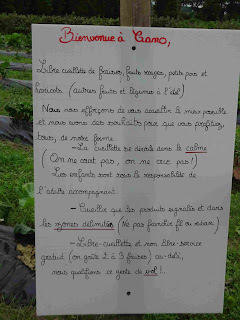 Bienvenue à
Libre cueillette de fraises, fruits rouges, petits pois et
haricots. (autres fruits et légumes à l'été)
Nous nous efforçons de vous accueillir le mieux possible
et nous avons des souhaits pour que vous profitiez,
tous, de notre ferme
- La cueillette se déroule dans le calme
(On ne court pas, on ne crie pas!)
Les enfants sont sous la responsabilité de
l'adulte accompagnant.
- Cueillir que les produits signalés et dans
les zones délimitées (Ne pas franchir fil ou
- Libre-cueillette et non libre-service
gratuit (on goûte 2 à 3 fraises) au-delà,
nous qualifions ce geste de vol!..